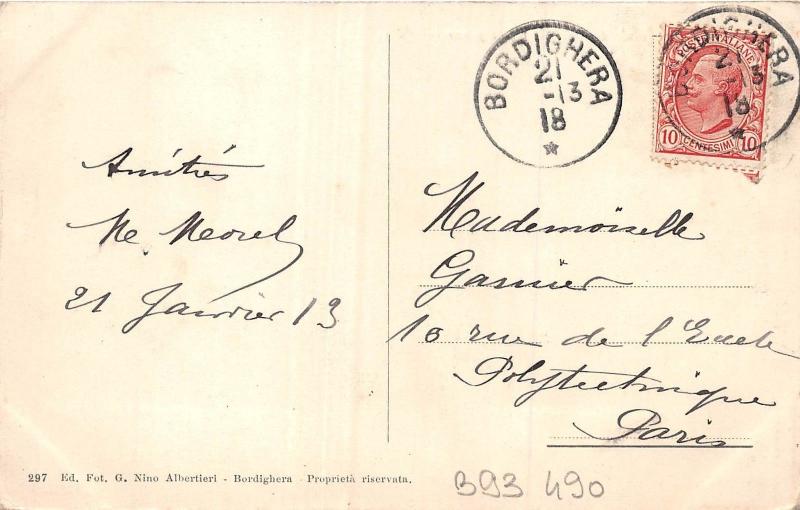 Amitiés
Morel
21 Janvier 13
BORDIGHERA
21
1-13
18
POSTE ITALIANE
10 CENTESIMI 10
BORDIGHERA
21
1-13
18
Mademoiselle
Garnier
10 rue de l'Ecole
Polytechnique
Paris
297 Ed. Fot. G. Nino Albertieri - Bordighera - Proprietà riservata.
B93 490